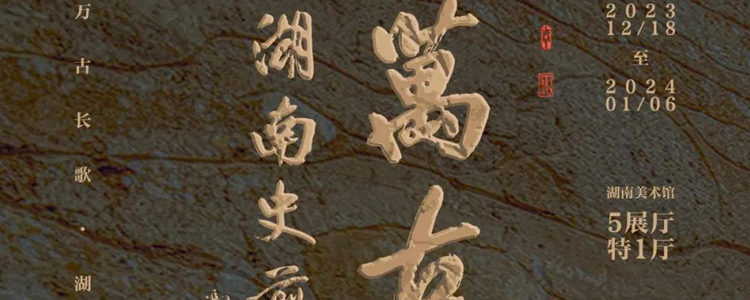 万古长歌·湖
湖南史前
萬古
2023
12/18
至
2024
01/06
湖南美术馆
5展厅
特1厅